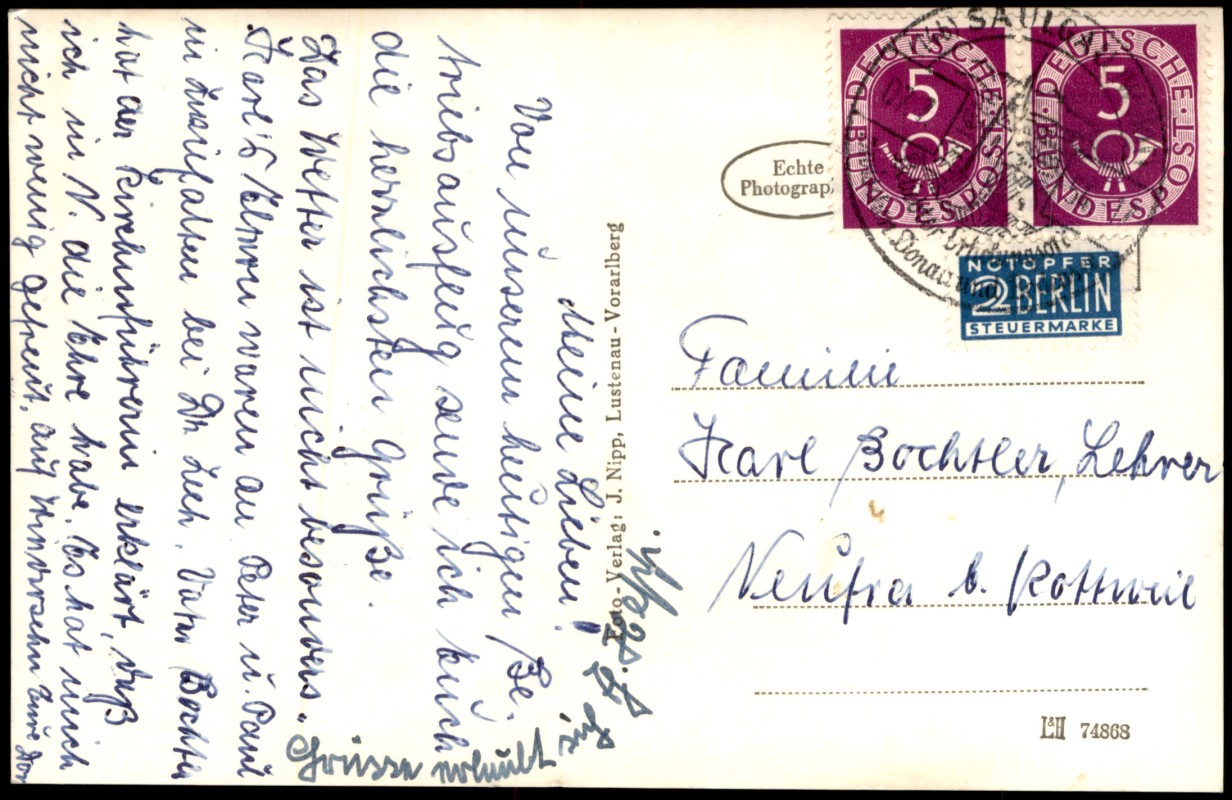 Meine Lieben!
Von unserem heutigen Be-
triebsausflug sende ich Euch
die herzlichsten Grüße.
Das Wetter ist nicht besonders.
Karl's Eltern waren an Peter u. Paul
in Zwiefalten bei Dr. Vater Bochtler
hat der Kirchenführerin erklärt, daß
ich in N. die Ehre habe. Es hat mich
nicht wenig gefreut. auf Wiedersehn Eure
Grüsse erlaubt sich
Foto-Verlag: J. Nipp, Lustenau-Vorarlberg
Echte
Photograph
SAULGAU
Donau und
DEUTSCHE BUNDESPOST
5
DEUTSCHE BUNDESPOST
5
NOTOPFER
2 BERLIN
STEUERMARKE
Familie
Karl Bochtler, Lehrer
Neufra b. Rottweil
L&H 74868